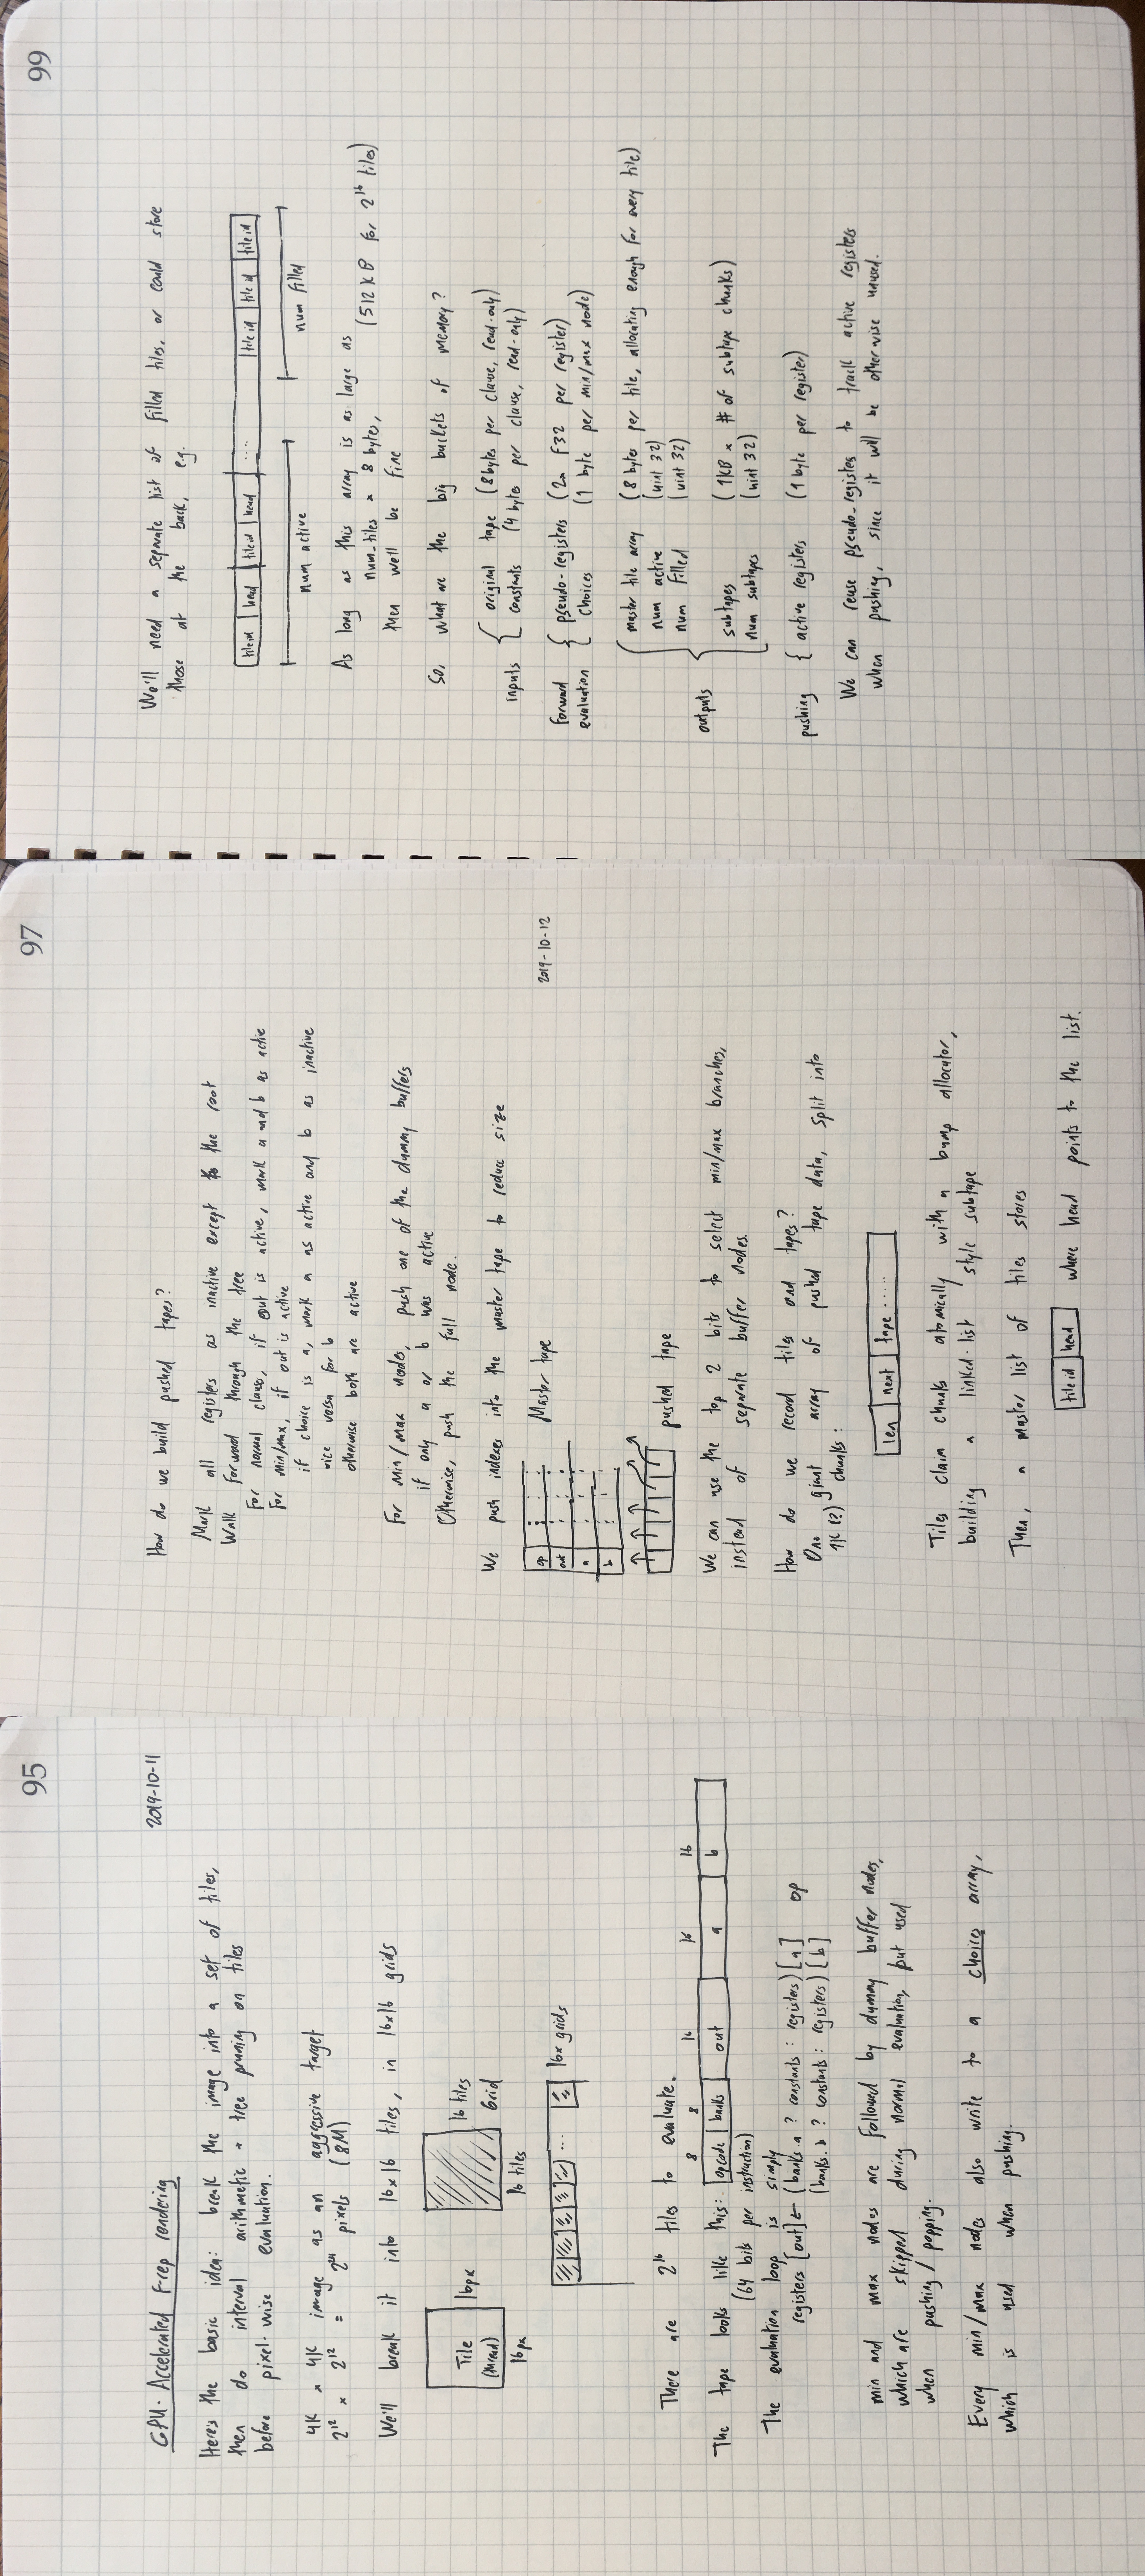 95
2019-10-11
GPU-Accelerated F-rep rendering
Here's the basic idea: break the image into a set of tiles,
then do interval arithmetic + tree pruning on tiles
before pixel-wise evaluation.
4K x 4K image as an aggressive target
2^12 x 2^12 = 2^24 pixels (8M)
We'll break it into 16x16 tiles, in 16x16 grids
Tile
(thread)
16px
16px
16 tiles
Grid
16 tiles
...
16x grids
There are 2^16 tiles to evaluate.
8 8 16 16 16
The tape looks like this: opcode banks out a b
(64 bits per instruction)
The evaluation loop is simply
registers [out] ← (banks.a ? constants : registers)[a] op
(banks.b ? constants : registers)[b]
min and max nodes are followed by dummy buffer nodes,
which are skipped during normal evaluation, but used
when pushing / popping.
Every min/max nodes also write to a choices array,
which is used when pushing.
97
How do we build pushed tapes?
Mark all registers as inactive except to the root
Walk forward through the tree
For normal clause, if out is active, mark a and b as active
For min/max, if out is active
if choice is a, mark a as active and b as inactive
vice versa for b
otherwise both are active
For min/max nodes, push one of the dummy buffers
if only a or b was active
Otherwise, push the full node.
We push indexes into the master tape to reduce size
op
out
a
b
Master tape
pushed tape
2019-10-12
We can use the top 2 bits to select min/max branches,
instead of separate buffer nodes.
How do we record tiles and tapes?
One giant array of pushed tape data, split into
1K (?) chunks:
len next tape .....
Tiles claim chunks atomically with a bump allocator,
building a linked-list style subtape
Then, a master list of tiles stores
tile id head where head points to the list.
99
We'll need a separate list of filled tiles, or could store
those at the back, e.g.
tile id head tile id head .... tile id tile id tile id
num active
num filled
As long as this array is as large as
num_tiles x 8 bytes, (512 KB for 2^16 tiles)
then we'll be fine
So, what are the big buckets of memory?
inputs { original tape (8 bytes per clause, read-only)
constants (4 bytes per clause, read-only)
Forward evaluation { pseudo-registers (2x F32 per register)
choices (1 byte per min/max node)
outputs { master tile array (8 bytes per tile, allocating enough for every tile)
num active (uint 32)
num filled (uint 32)
subtapes (1KB x # of subtape chunks)
num subtapes (uint 32)
pushing { active registers (1 byte per register)
We can reuse pseudo-registers to track active registers
when pushing, since it will be otherwise unused.